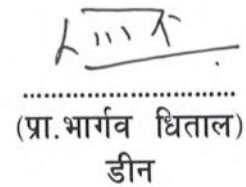 (प्रा.भार्गव धिताल)
डीन